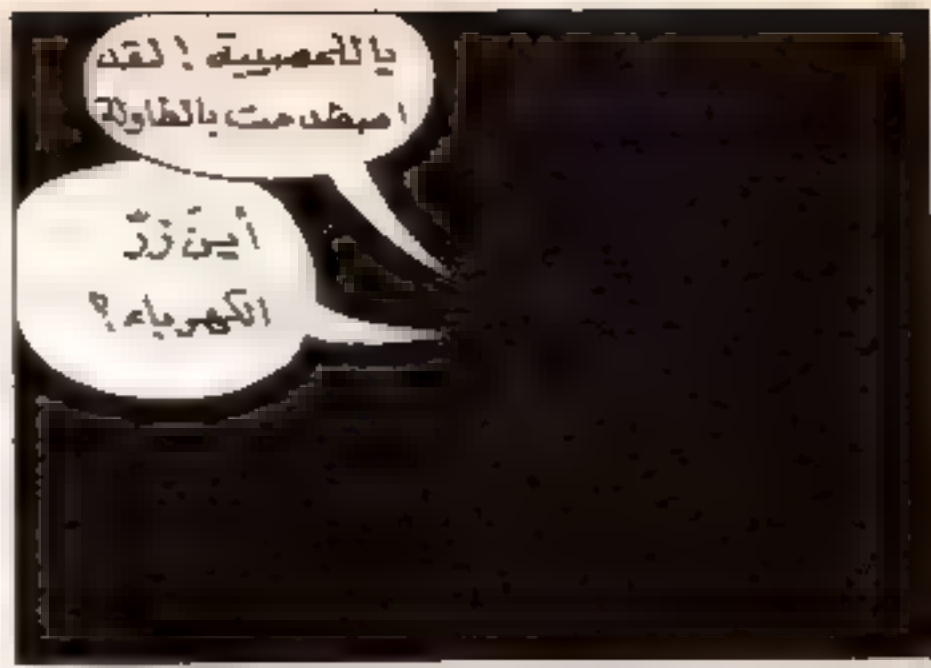 يا للمصيبة ! لقد
اصطدمت بالطاولة
أينَ زرّ
الكهرباء ؟